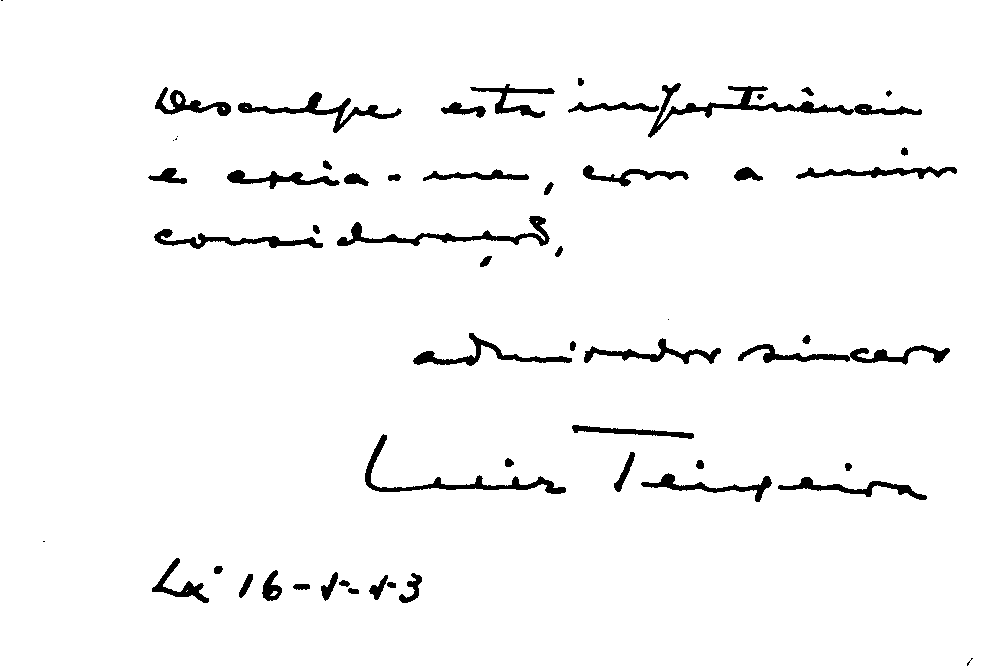 Desculpe esta impertinência
e creia-me, com a maior
consideração,
admirador sincero
Luiz Teixeira
Lxª 16-